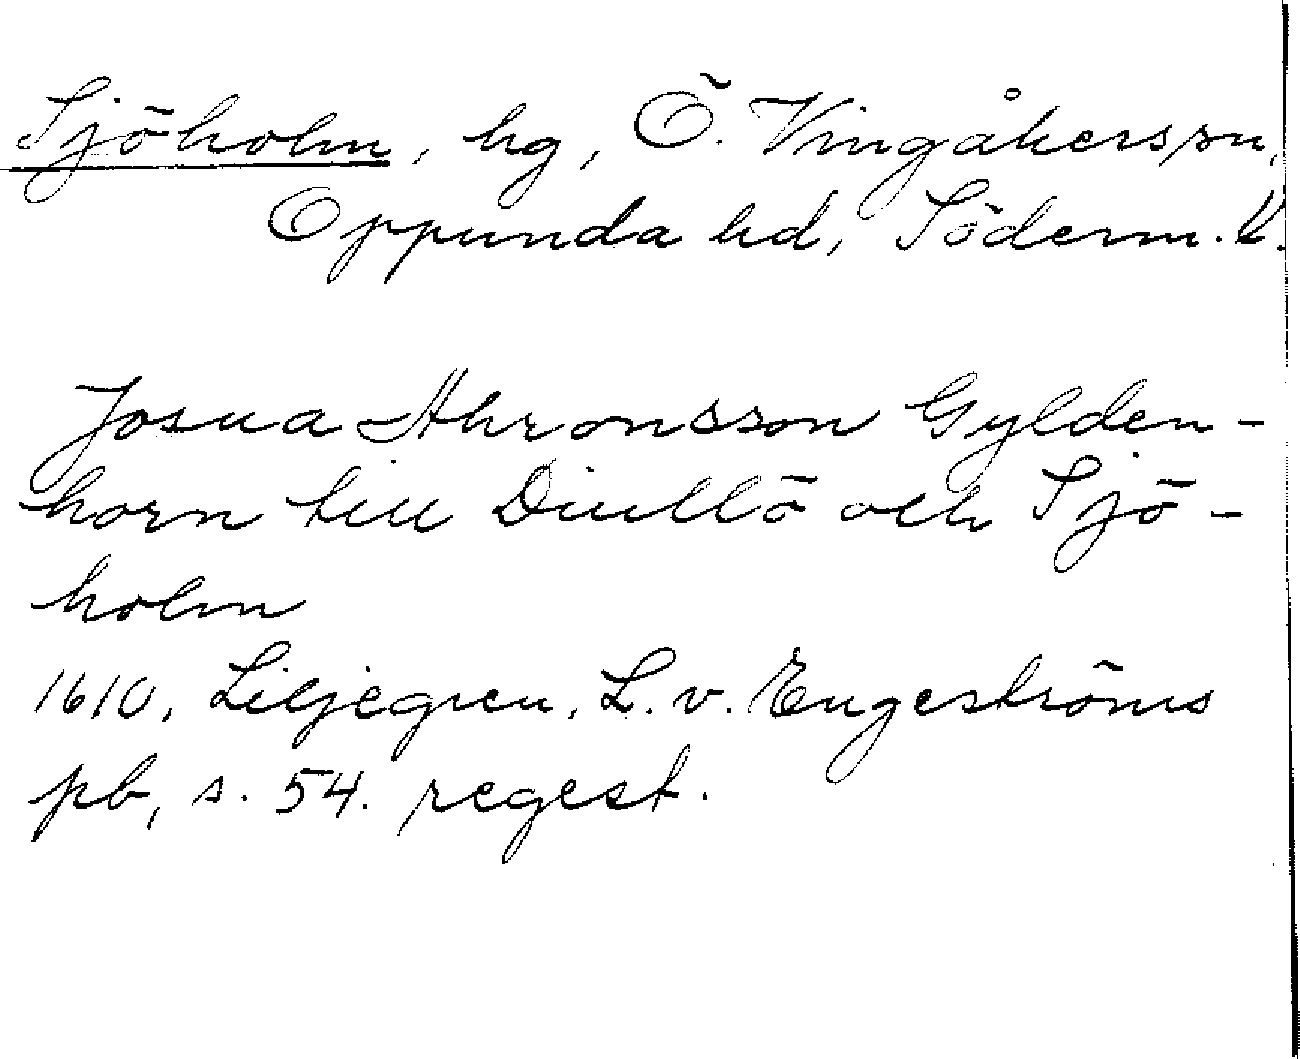 Sjöholm, hg, Ö. Vingåkers sn,
Oppunda hd, Söderm. l.
Josua Ahronsson Gylden-
horn till Diullö och Sjö-
holm
1610, Liljegren, L. v. Engeströms
pb, s. 54. regest.